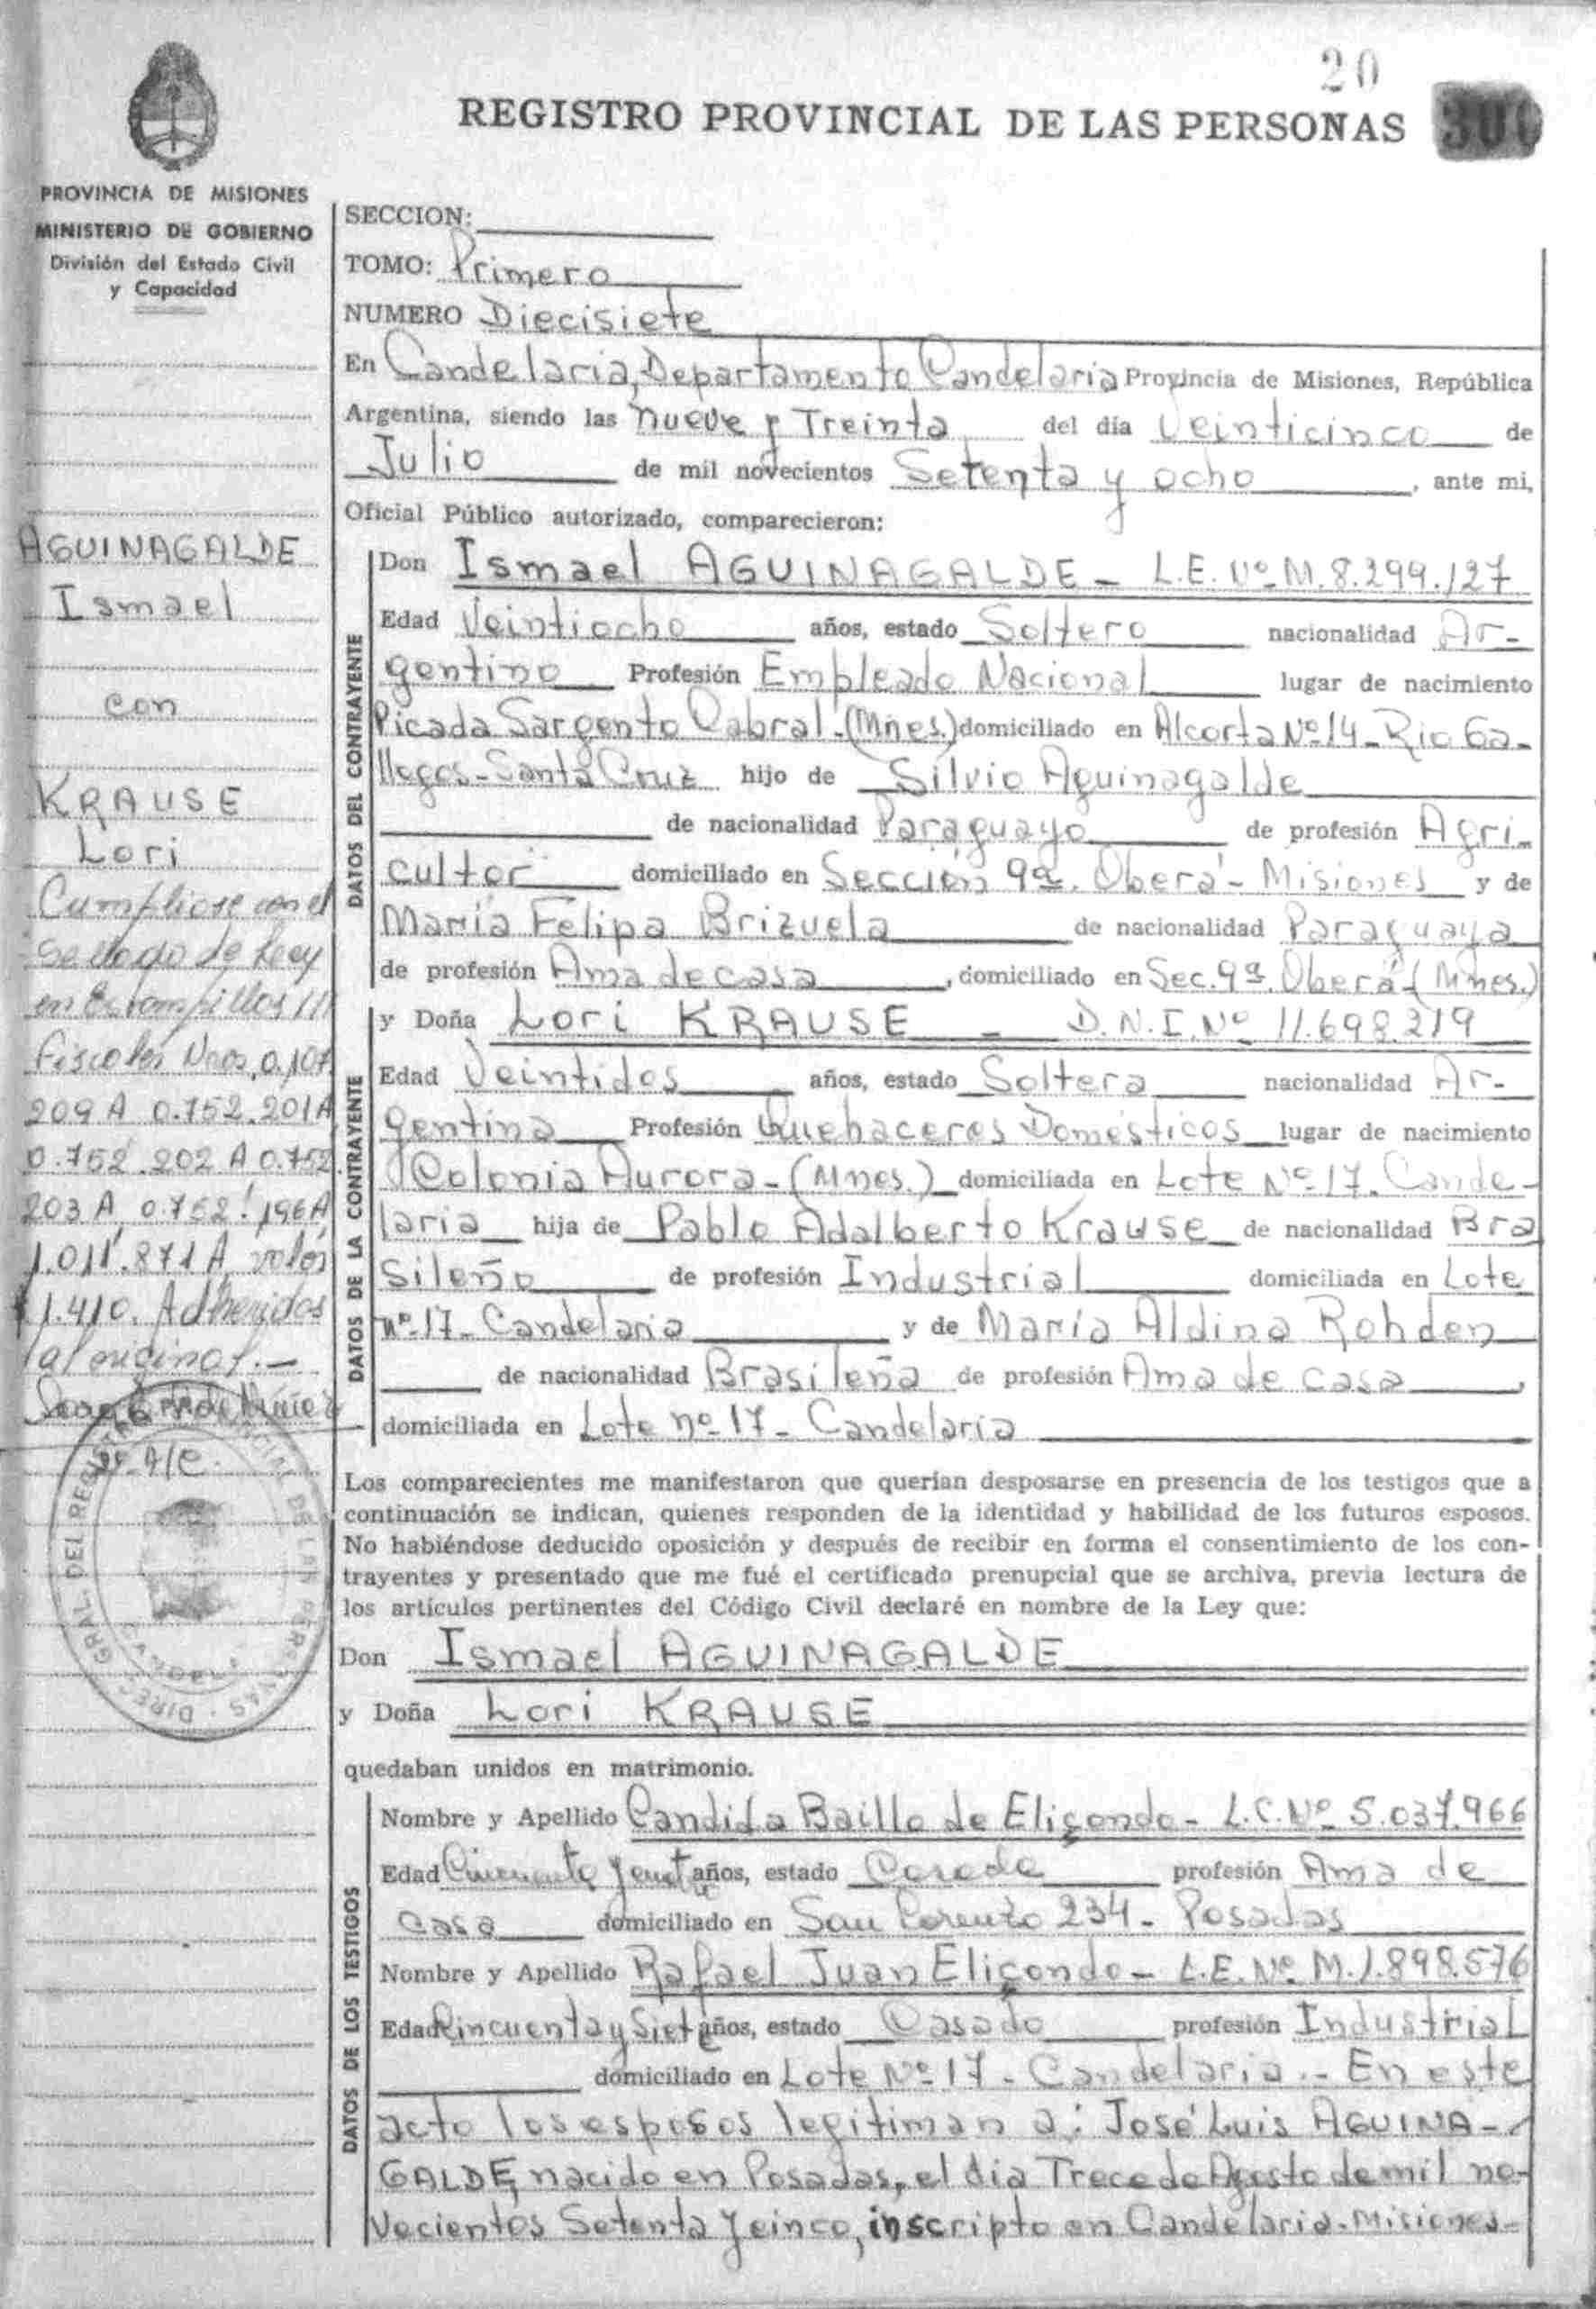 20
REGISTRO PROVINCIAL DE LAS PERSONAS
PROVINCIA DE MISIONES
MINISTERIO DE GOBIERNO
División del Estado Civil
y Capacidad
AGUINAGALDE
Ismael
con
KRAUSE
Lori
Cumpliose con el
Sellado de Ley
en Estampillas ///
Fiscales Nros. 0.107.
209 A 0.752.201 A
0.752.202 A 0.752.
203 A 0.752.196 A
1.011.871 A valor
$ 1.410. Adheridos
al original.-
SECCION:
TOMO: Primero
NUMERO Diecisiete
En Candelaria, Departamento Candelaria Provincia de Misiones, República
Argentina, siendo las nueve y Treinta del día Veinticinco de
Julio de mil novecientos Setenta y ocho, ante mi,
Oficial Público autorizado, comparecieron:
DATOS DEL CONTRAYENTE
Don Ismael AGUINAGALDE - L.E. Nº M. 8.299.127
Edad Veintiocho años, estado Soltero nacionalidad Ar-
gentino Profesión Empleado Nacional lugar de nacimiento
Picada Sargento Cabral.(Mnes.) domiciliado en Alcorta Nº 14 - Rio Ga-
llegos - Santa Cruz hijo de Silvio Aguinagalde
de nacionalidad Paraguayo de profesión Agri-
cultor domiciliado en Sección 9ª. Oberá - Misiones y de
María Felipa Brizuela de nacionalidad Paraguaya
de profesión Ama de casa, domiciliado en Sec. 9ª. Oberá - (Mnes.)
DATOS DE LA CONTRAYENTE
y Doña Lori KRAUSE - D.N.I. Nº 11.698.219
Edad Veintidos años, estado Soltera nacionalidad Ar-
gentina Profesión Quehaceres Domésticos lugar de nacimiento
Colonia Aurora - (Mnes.) domiciliada en Lote Nº 17. Cande-
laria hija de Pablo Adalberto Krause de nacionalidad Bra
sileño de profesión Industrial domiciliada en Lote
nº 17 - Candelaria y de María Aldina Rohden
de nacionalidad Brasileña de profesión Ama de casa,
domiciliada en Lote nº 17 - Candelaria
Los comparecientes me manifestaron que querían desposarse en presencia de los testigos que a
continuación se indican, quienes responden de la identidad y habilidad de los futuros esposos.
No habiéndose deducido oposición y después de recibir en forma el consentimiento de los con-
trayentes y presentado que me fué el certificado prenupcial que se archiva, previa lectura de
los artículos pertinentes del Código Civil declaré en nombre de la Ley que:
Don Ismael AGUINAGALDE
y Doña Lori KRAUSE
quedaban unidos en matrimonio.
DATOS DE LOS TESTIGOS
Nombre y Apellido Candida Baillo de Eliçondo - L.C. Nº 5.037.966
Edad Cincuenta y años, estado Casada profesión Ama de
casa domiciliado en San Lorenzo 234 - Posadas
Nombre y Apellido Rafael Juan Eliçondo - L.E. Nº M. 1.898.576
Edad Cincuenta y Siete años, estado Casado profesión Industrial
domiciliado en Lote Nº 17 - Candelaria.- En este
acto los esposos legitiman a: José Luis AGUINA-
GALDE, nacido en Posadas, el dia Trece de Agosto de mil no-
vecientos Setenta y cinco, inscripto en Candelaria. Misiones-